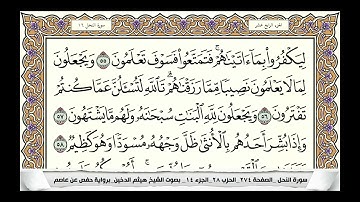 الجزء الرابع عشر
سورة النحل ١٦
لِيَكْفُرُوا۟ بِمَآ ءَاتَيْنَٰهُمْ ۚ فَتَمَتَّعُوا۟ فَسَوْفَ تَعْلَمُونَ ٥٥ وَيَجْعَلُونَ
لِمَا لَا يَعْلَمُونَ نَصِيبًا مِّمَّا رَزَقْنَٰهُمْ ۗ تَٱللَّهِ لَتُسْـَٔلُنَّ عَمَّا كُنتُمْ
تَفْتَرُونَ ٥٦ وَيَجْعَلُونَ لِلَّهِ ٱلْبَنَٰتِ سُبْحَٰنَهُۥ وَلَهُم مَّا يَشْتَهُونَ ٥٧
وَإِذَا بُشِّرَ أَحَدُهُم بِٱلْأُنثَىٰ ظَلَّ وَجْهُهُۥ مُسْوَدًّا وَهُوَ كَظِيمٌ ٥٨
سورة النحل _ الصفحة ٢٧٤_ الحزب ٢٨_ الجزء ١٤_ بصوت الشيخ هيثم الدخين_ برواية حفص عن عاصم